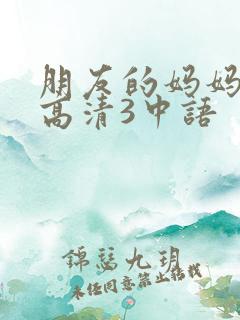 朋友的妈妈
高清3中語
錦瑟九玥
未任同意禁止转载